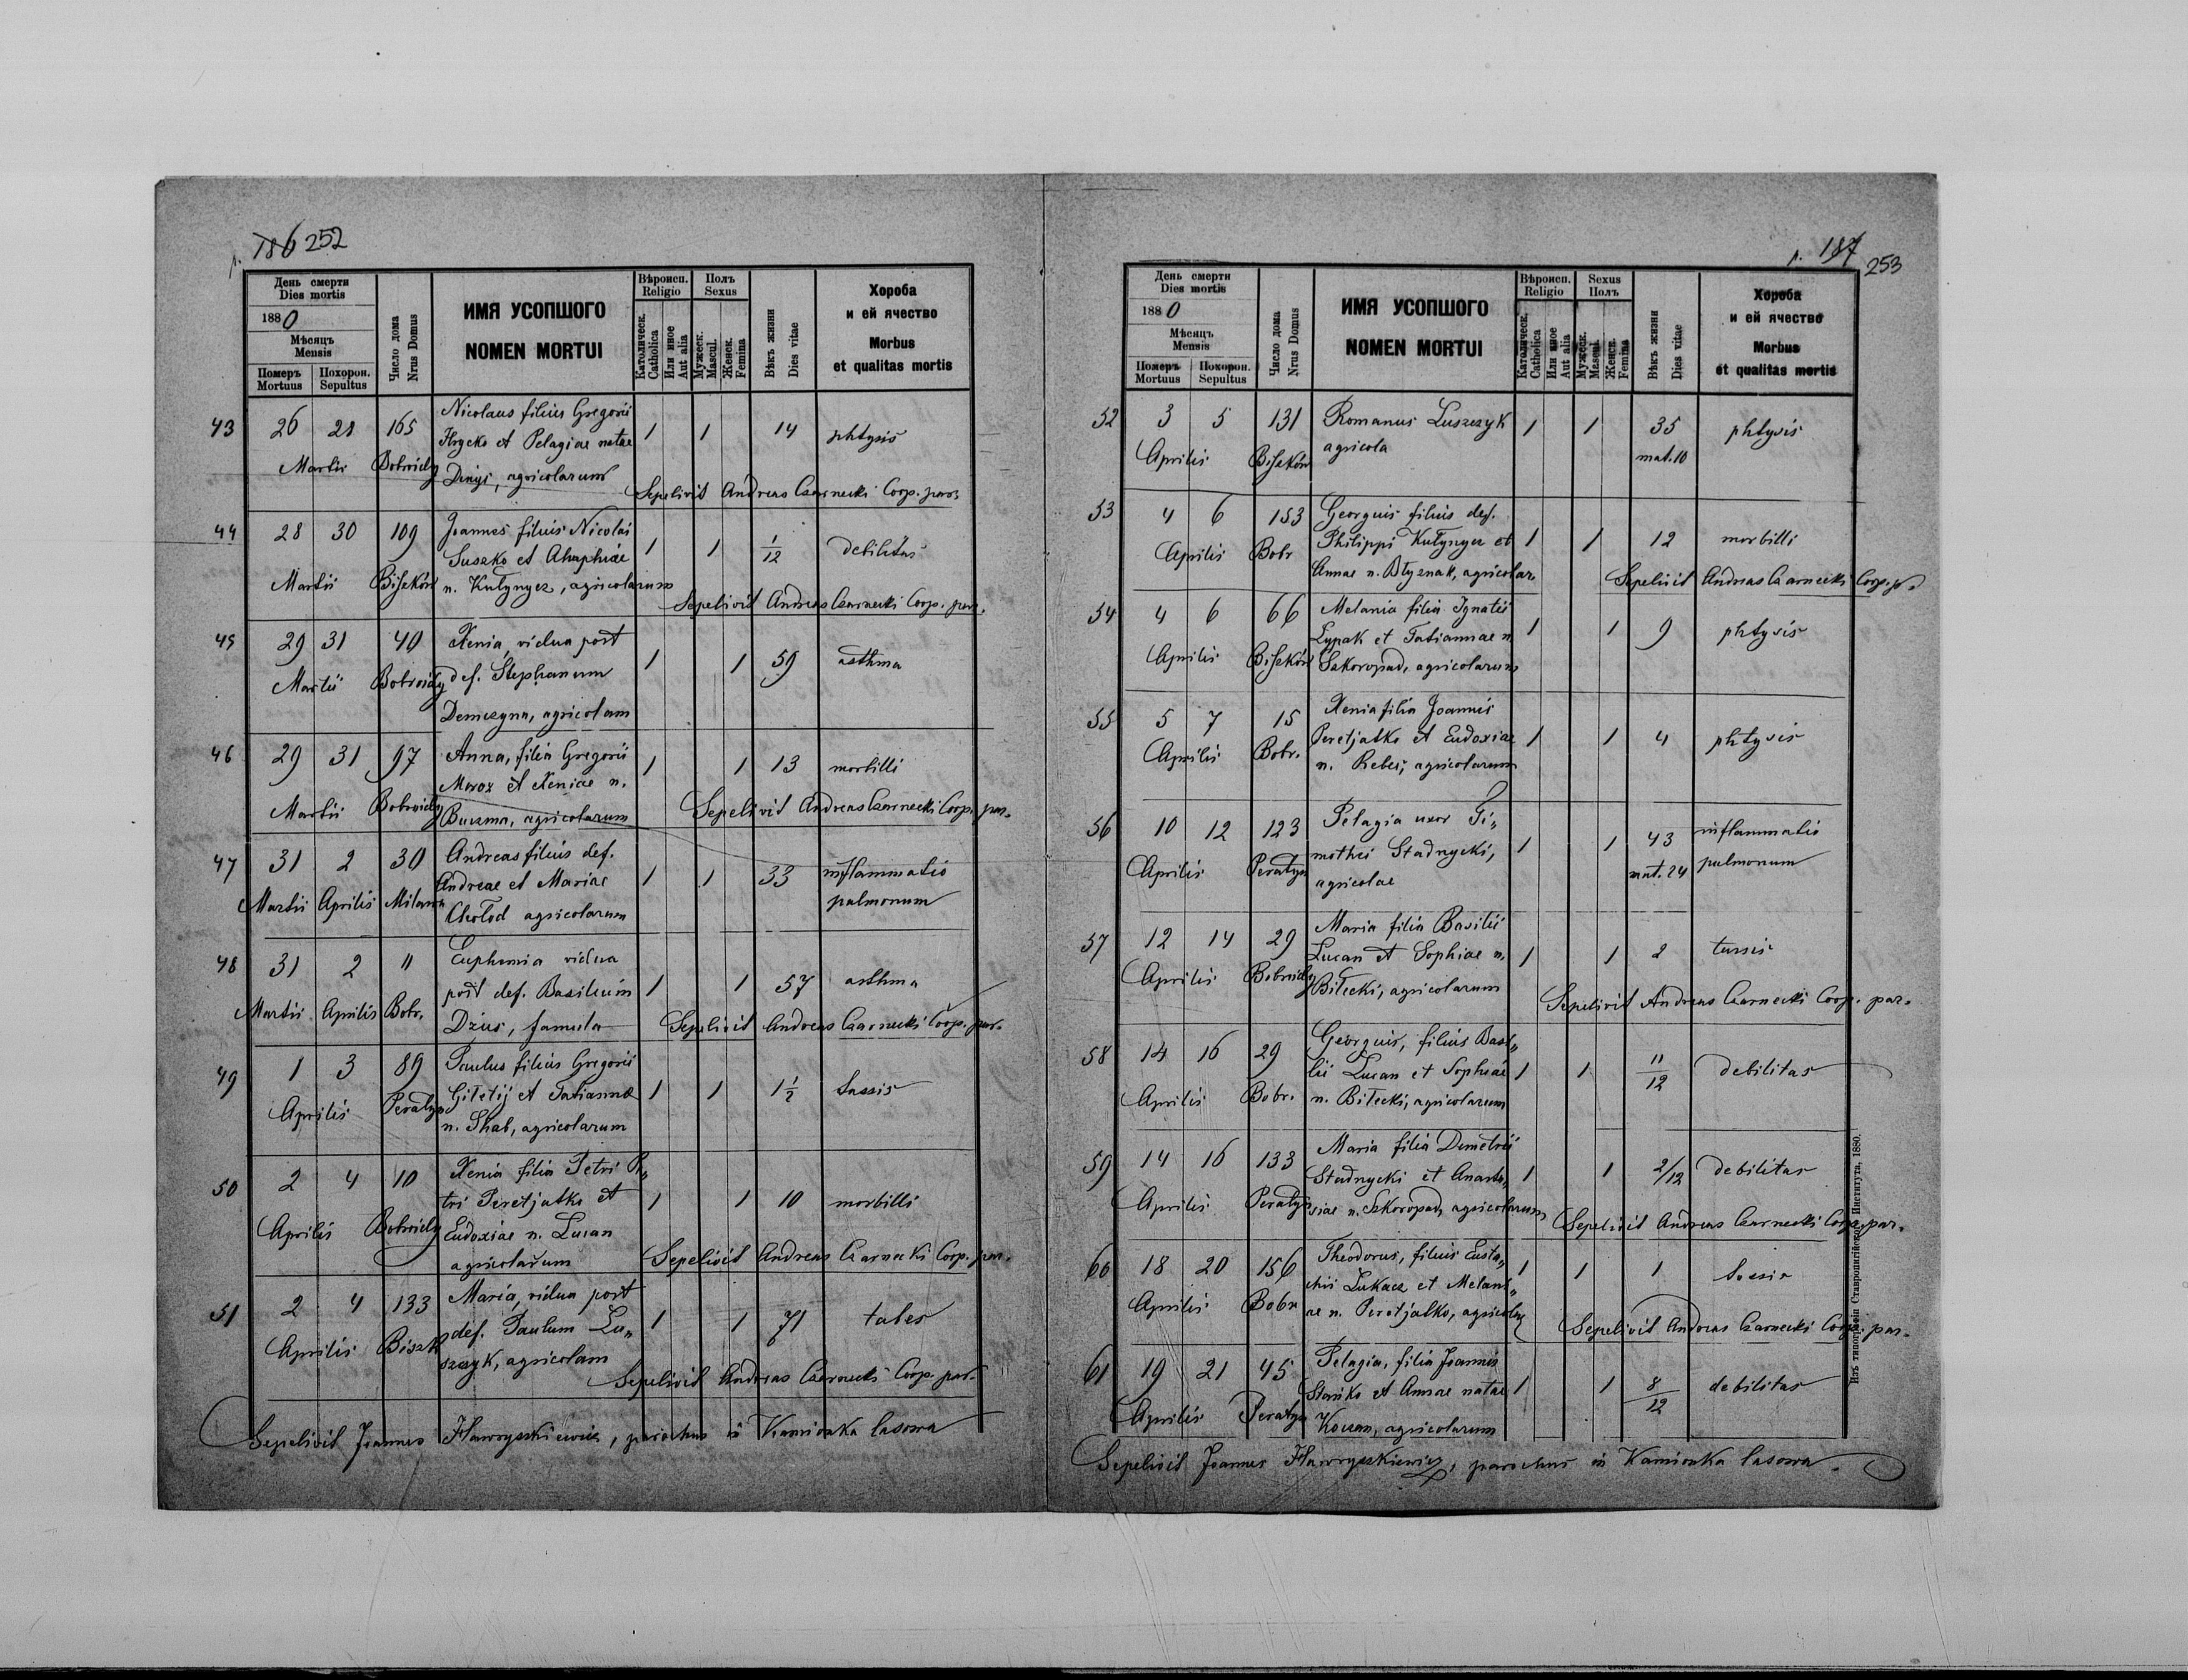 p. 186 252
День смерти
Dies mortis
1880
Мѣсяцъ
Mensis
Померъ
Mortuus
Похорон.
Sepultus
Число дома
Nrus Domus
ИМЯ УСОПШОГО
NOMEN MORTUI
Вѣроисп.
Religio
Католическ.
Catholica
Или иное
Aut alia
Полъ
Sexus
Мужеск.
Mascul.
Женск.
Femina
Вѣкъ жизни
Dies vitae
Хороба
и ей ячество
Morbus
et qualitas mortis
43 26 28 165 Nicolaus filius Gregorii
Hrycko et Pelagiae natae 1 1 14 phtysis
Martii Botwidy Dinys, agricolarum
Sepelivit Andreas Czarnecki Coop. par.
44 28 30 109 Joannes filius Nicolai
Suszko et Ahaphiae 1 1 1/12 debilitas
Martii Biszków n. Kułynycz, agricolarum
Sepelivit Andreas Czarnecki Coop. par.
45 29 31 40 Xenia, vidua post
Martii def. Stephanum 1 1 59 asthma
Demczyna, agricolam
46 29 31 97 Anna, filia Gregorii
Moroz et Xeniae n. 1 1 13 morbilli
Martii Buczma, agricolarum
Sepelivit Andreas Czarnecki Coop. par.
47 31 2 30 Andreas filius def.
Andreae et Mariae 1 1 33 inflammatio
Martii Aprilis Chołod agricolarum pulmonum
48 31 2 11 Euphemia vidua
post def. Basilium 1 1 57 asthma
Martii Aprilis Bobr. Dzius, famula
Sepelivit Andreas Czarnecki Coop. par.
49 1 3 89 Paulus filius Gregorii
Giłetij et Tatianna 1 1 1 1/2 tussis
Aprilis Peratyn n. Shab, agricolarum
50 2 4 10 Xenia filia Petri Pe„
tri Peretjatko et 1 1 10 morbilli
Aprilis Eudoxiae n. Lucan
agricolarum
Sepelivit Andreas Czarnecki Coop. par.
51 2 4 133 Maria, vidua post
def. Paulum Lu„ 1 1 71 tabes
Aprilis Biszk szczyk, agricolam
Sepelivit Andreas Czarnecki Coop. par.
Sepelivit Joannes Hawryszkiewicz, parochus in Kamionka lasowa
p. 187 253
День смерти
Dies mortis
1880
Мѣсяцъ
Mensis
Померъ
Mortuus
Похорон.
Sepultus
Число дома
Nrus Domus
ИМЯ УСОПШОГО
NOMEN MORTUI
Вѣроисп.
Religio
Католическ.
Catholica
Или иное
Aut alia
Sexus
Полъ
Мужеск.
Mascul.
Женск.
Femina
Вѣкъ жизни
Dies vitae
Хороба
и ей ячество
Morbus
et qualitas mortis
52 3 5 131 Romanus Luszczyk 1 1 35 phtysis
Aprilis Biszków agricola mat. 10
53 4 6 153 Georguis filius def.
Aprilis Bobr Philippi Kułynycz et 1 1 12 morbilli
Annae n. Błyznak, agricolar.
Sepelivit Andreas Czarnecki Coop. p.
54 4 6 66 Melania filia Ignatii
Łypak et Tatiannae n. 1 1 9 phtysis
Aprilis Biszków Szkoropad, agricolarum
55 5 7 15 Xenia filia Joannis
Peretjatko et Eudoxiae 1 1 4 phtysis
Aprilis Bobr. n. Rebei, agricolarum
56 10 12 123 Pelagia uxor Ti„
mothei Stadnycki, 1 1 43 inflammatio
Aprilis Peratyn agricolae mat. 24 pulmonum
57 12 14 29 Maria filia Basilii
Lucan et Sophiae n. 1 1 2 tussis
Aprilis Biłecki, agricolarum
Sepelivit Andreas Czarnecki Coop. par.
58 14 16 29 Georguis, filius Basi„
lii Lucan et Sophiae 1 1 11/12 debilitas
Aprilis Bobr. n. Biłecki, agricolarum
59 14 16 133 Maria filia Demetrii
Stadnycki et Anasta„ 1 1 2/12 debilitas
Aprilis Peratyn siae n. Szkoropad, agricolarum
Sepelivit Andreas Czarnecki Coop. par.
60 18 20 156 Theodorus, filius Eusta„
chii Łukacz et Melani„ 1 1 1 tussis
Aprilis Bobr ae n. Peretjatko, agricolar.
Sepelivit Andreas Czarnecki Coop. par.
61 19 21 45 Pelagia, filia Joannis
Stańko et Annae natae 1 1 8/12 debilitas
Aprilis Peratyn Kocan, agricolarum
Sepelivit Joannes Hawryszkiewicz, parochus in Kamionka lasowa.
Изъ типографіи Ставропигійского Института, 1880.